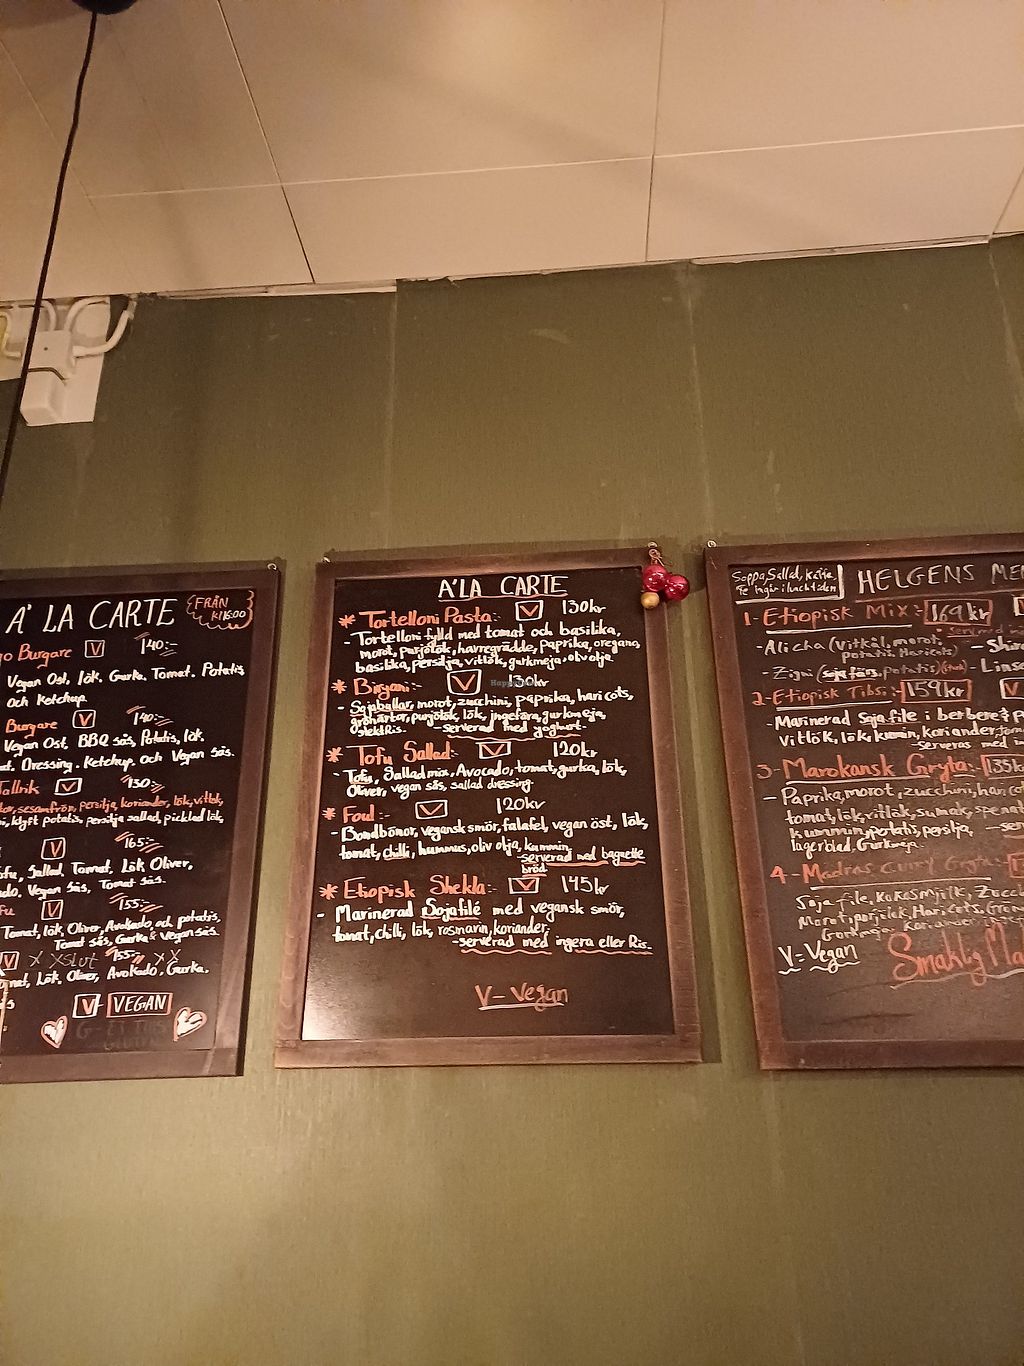 A' LA CARTE
FRÅN
KL 16:00
go Burgare V 140:-
Vegan Ost, lök. Gurka. Tomat. Potatis
och Ketchup.
Burgare V 140:-
Vegan Ost, BBQ sås, Potatis, lök.
at. Dressing. Ketchup. och Vegan sås.
Tallrik V 130:-
sesamfrön, persilja, koriander, lök, vitlök,
klyft potatis, persilja sallad, picklad lök,
V 165:-
ofu, Sallad. Tomat. Lök, Oliver,
Vegan Sås, Tomat sås.
fu V 155:-
Tomat, lök, Oliver, Avokado och potatis,
Tomat sås, Gurka & Vegan sås.
V X XSlut 155:- XX
omat, Lök, Oliver, Avokado, Gurka.
s
V - VEGAN
A' LA CARTE
* Tortelloni Pasta:- V 130kr
- Tortelloni fylld med tomat och basilika,
morot, purjolök, havregrädde, paprika, oregano,
basilika, persilja, vitlök, gurkmeja, oliv olja.
* Biryani:- V 130kr
- Sojabullar, morot, zucchini, paprika, haricots,
grönärtor, purjolök, lök, ingefära, gurkmeja,
stekt Ris. - serverad med yoghurt-
* Tofu Sallad:- V 120kr
- Tofu, Sallad mix, Avocado, tomat, gurka, lök,
Oliver, vegan sås, sallad dressing.
* Foul:- V 120kr
- Bondbönor, vegansk smör, falafel, vegan öst, lök,
tomat, chilli, hummus, oliv olja, kummin.
-serverad med baguette
bröd
* Etiopisk Shekla:- V 145kr
- Marinerad Sojafilé med vegansk smör,
tomat, chilli, lök, rosmarin, koriander.
-serverad med ingera eller Ris.
V - Vegan
Soppa, Sallad, kaffe
Te ingår i lunchtiden
HELGENS ME
1- Etiopisk Mix:- 169 kr
- Alicha (Vitkål, morot, - Shiro
potatis, Haricots)
- Zigni (soja färs, potatis) - Linse
2- Etiopisk Tibs:- 159kr V
- Marinerad Soja file i berbere & p
vitlök, lök, kumin, koriander, tom
-serveras med in
3- Marokansk Gryta:- 135k
- Paprika, morot, zucchini, haric
tomat, lök, vitlök, sumak, spenat
kummin, potatis, persilja, - se
lagerblad, Gurkmeja.
4- Madras Curry Gryta:-
Soja file, Kokosmjölk, Zucc
Morot, purjolök, Haricots, Grön
Gurkmeja. Koriander
V = Vegan
Smaklig Ma